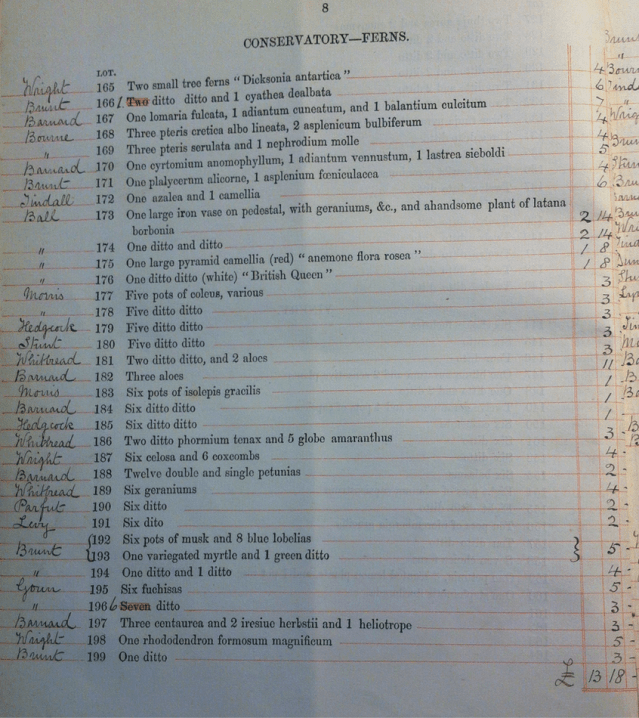 8
CONSERVATORY—FERNS.
LOT.
Wright 165 Two small tree ferns "Dicksonia antartica"
Brunt 166 1 Two ditto ditto and 1 cyathea dealbata 4
Barnard 167 One lomaria fulcata, 1 adiantum cuneatum, and 1 balantium culcitum 6
Bourne 168 Three pteris cretica albo lineata, 2 asplenium bulbiferum 7
" 169 Three pteris serulata and 1 nephrodium molle 4
Barnard 170 One cyrtomium anomophyllum, 1 adiantum vennustum, 1 lastrea sieboldi 4
Brunt 171 One platycerum alicorne, 1 asplenium fœniculacea 5
Tindall 172 One azalea and 1 camellia 4
Ball 173 One large iron vase on pedestal, with geraniums, &c., and ahandsome plant of latana 6
borbonia 2 14
" 174 One ditto and ditto 2 14
" 175 One large pyramid camellia (red) "anemone flora rosea" 1 8
" 176 One ditto ditto (white) "British Queen" 1 8
Morris 177 Five pots of coleus, various 3
" 178 Five ditto ditto 3
Hedgcock 179 Five ditto ditto 3
Stunt 180 Five ditto ditto 3
Whitbread 181 Two ditto ditto, and 2 aloes 3
Barnard 182 Three aloes 11
Morris 183 Six pots of isolepis gracilis 1
Barnard 184 Six ditto ditto 1
Hedgcock 185 Six ditto ditto 1
Whitbread 186 Two ditto phormium tenax and 5 globe amaranthus 3 -
Wright 187 Six celosa and 6 coxcombs 4 -
Barnard 188 Twelve double and single petunias 2 -
Whitbread 189 Six geraniums 4 -
Parfut 190 Six ditto 2 -
Levy 191 Six dito 2 -
192 Six pots of musk and 8 blue lobelias
Brunt 193 One variegated myrtle and 1 green ditto 5 -
" 194 One ditto and 1 ditto 4 -
195 Six fuchisas 5 -
" 196 6 Seven ditto 3 -
Barnard 197 Three centaurea and 2 iresiue herbstii and 1 heliotrope 3 -
Wright 198 One rhododendron formosum magnificum 5 -
Brunt 199 One ditto 3 -
13 18 -